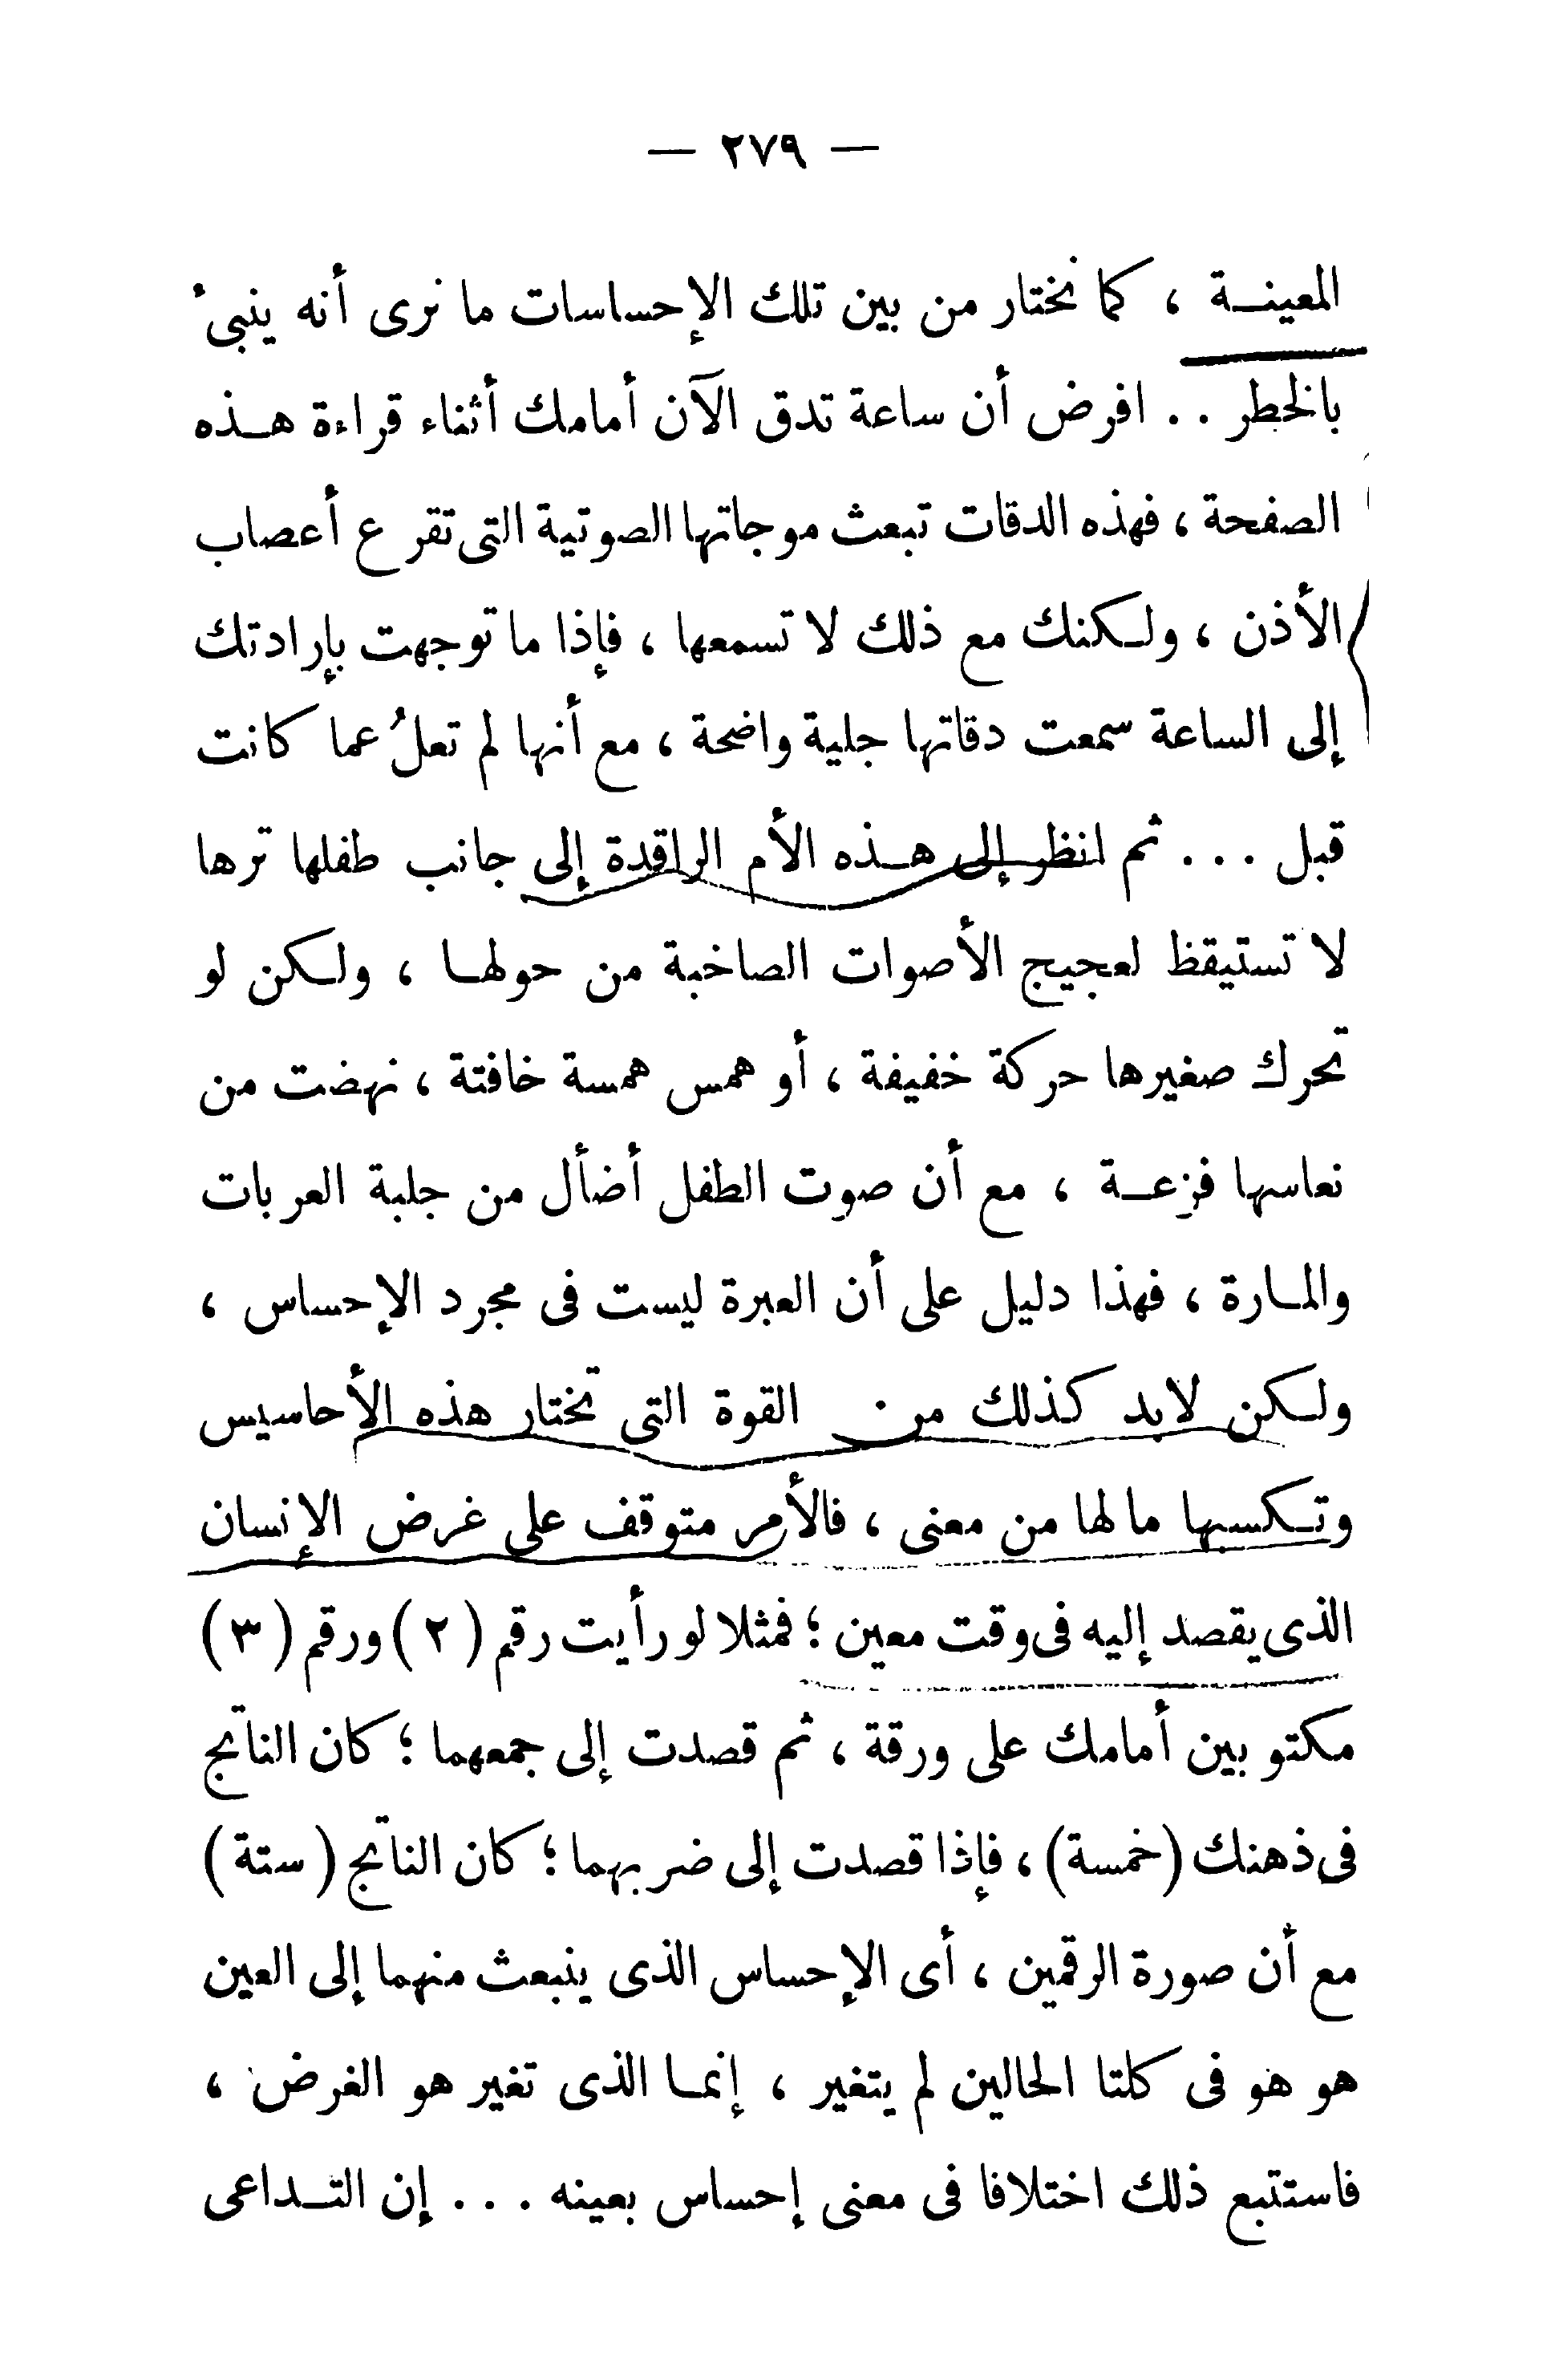 — ٢٧٩ —
المعينـة ، كما نختار من بين تلك الإحساسات ما نرى أنه ينبىء
بالخطر . . افرض أن ساعة تدق الآن أمامك أثناء قراءة هـذه
الصفحة ، فهذه الدقات تبعث موجاتها الصوتية التى تقرع أعصاب
الأذن ، ولـكنك مع ذلك لا تسمعها ، فإذا ما توجهت بإرادتك
إلى الساعة سمعت دقاتها جلية واضحة ، مع أنها لم تعلُ عما كانت
قبل . . . ثم انظر إلى هـذه الأم الراقدة إلى جانب طفلها ترها
لا تستيقظ لعجيج الأصوات الصاخبة من حولهـا ، ولـكن لو
تحرك صغيرها حركة خفيفة ، أو همس همسة خافتة ، نهضت من
نعاسها فزعـة ، مع أن صوت الطفل أضأل من جلبة العربات
والمـارة ، فهذا دليل على أن العبرة ليست فى مجرد الإحساس ،
ولـكن لابد كذلك من القوة التى تختار هذه الأحاسيس
وتـكسبها مالها من معنى ، فالأمر متوقف على غرض الإنسان
الذى يقصد إليه فى وقت معين ؛ فمثلا لو رأيت رقم ( ٢ ) ورقم ( ٣ )
مكتوبين أمامك على ورقة ، ثم قصدت إلى جمعهما ؛ كان الناتج
فى ذهنك ( خمسة ) ، فإذا قصدت إلى ضربهما ؛ كان الناتج ( ستة )
مع أن صورة الرقمين ، أى الإحساس الذى ينبعث منهما إلى العين
هو هو فى كلتا الحالين لم يتغير ، إنمـا الذى تغير هو الغرض ،
فاستتبع ذلك اختلافا فى معنى إحساس بعينه . . . إن التـداعى